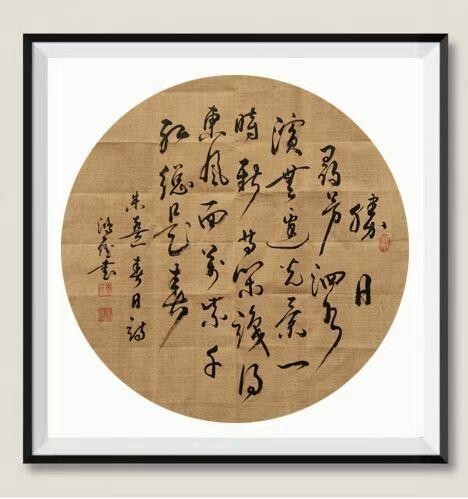 勝日
尋芳泗水
濱無邊光景一
時新等閒識得
東風面萬紫千
紅總是春
朱熹春日詩
書